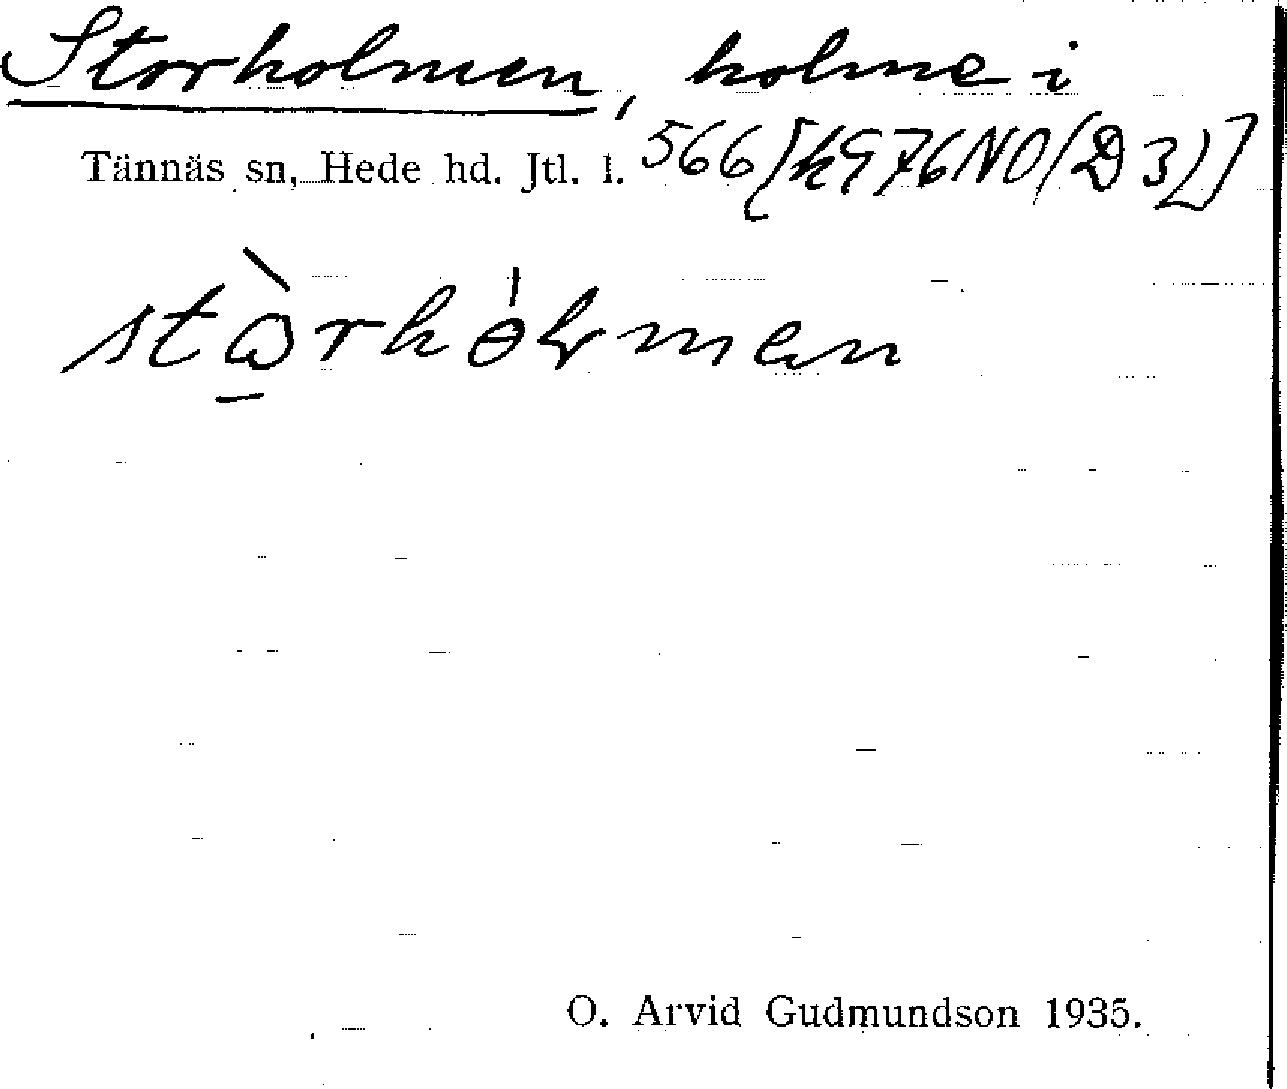 Storholmen, holme i
Tännäs sn, Hede hd. Jtl. l. 566 [k976NO(D3)]
stòrhòlmen
O. Arvid Gudmundson 1935.